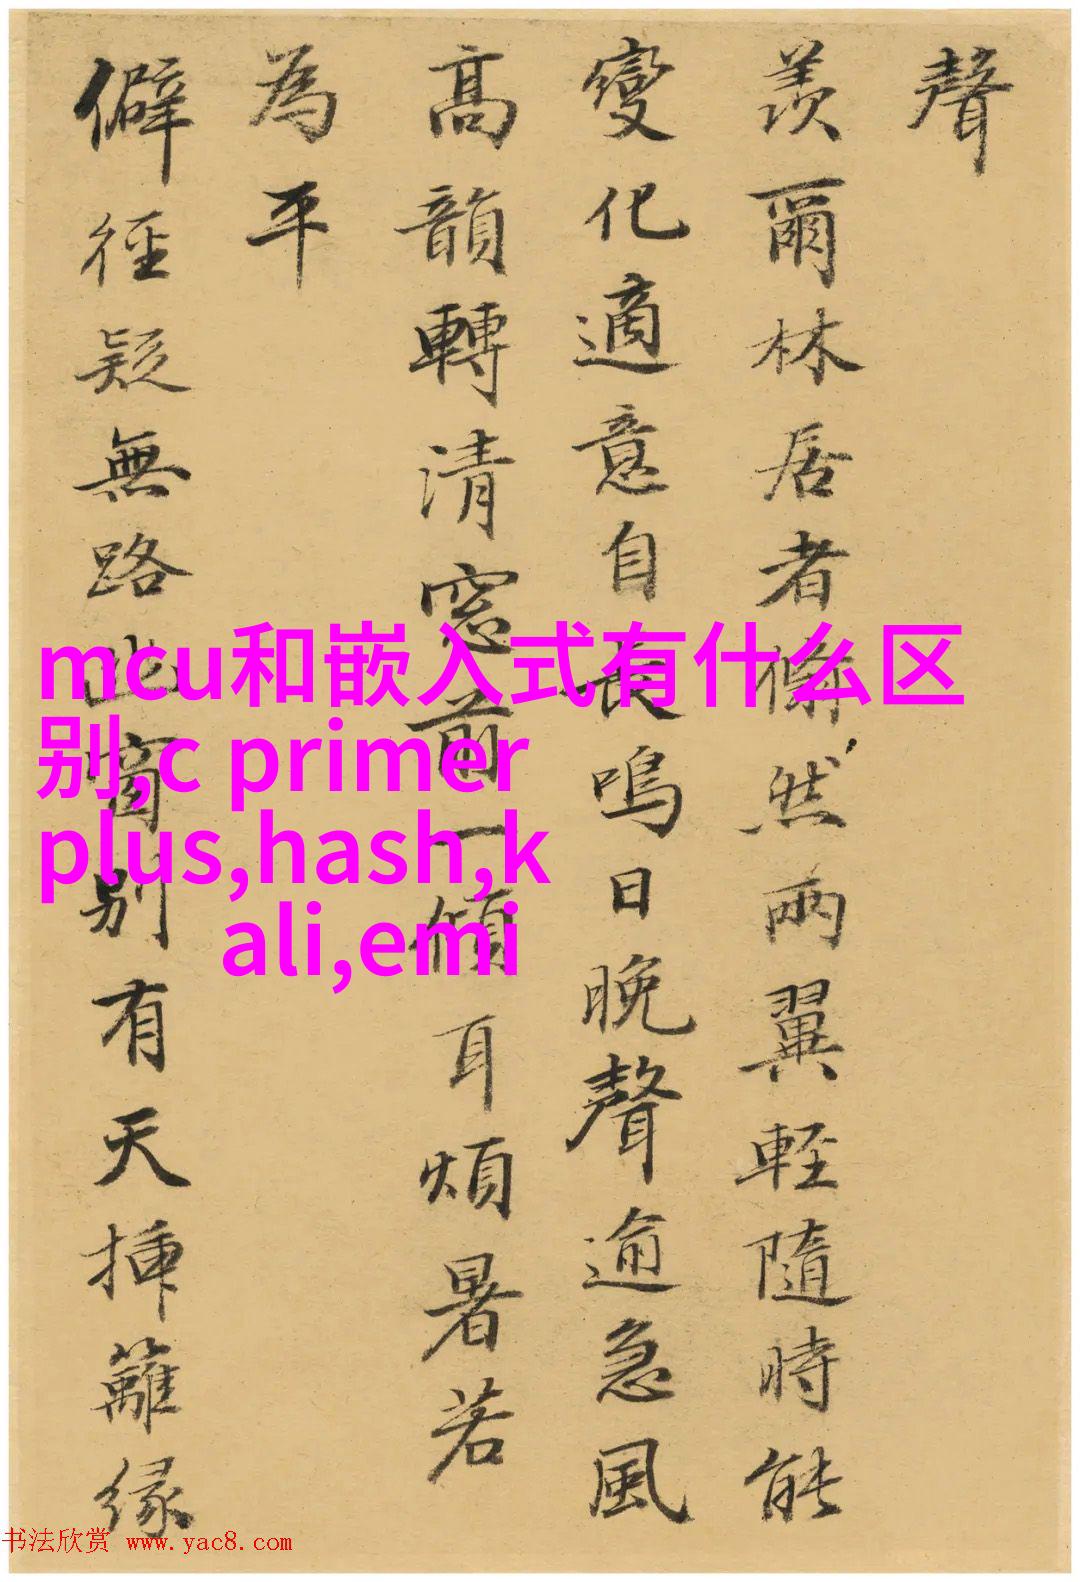 聲
羨爾林居者翛然兩翼輕隨時能
變化適意自長鳴日晚聲逾急風
高韻轉清窓前一傾耳煩暑若
為平
僻徑疑無路幽窗別有天揷籬緣
mcu和嵌入式有什么区
别,c primer
plus,hash,k
ali,emi
书法欣赏 www.yac8.com